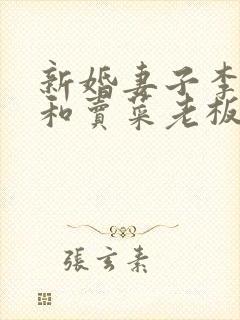 新婚妻子李
和賣菜老板
張玄素